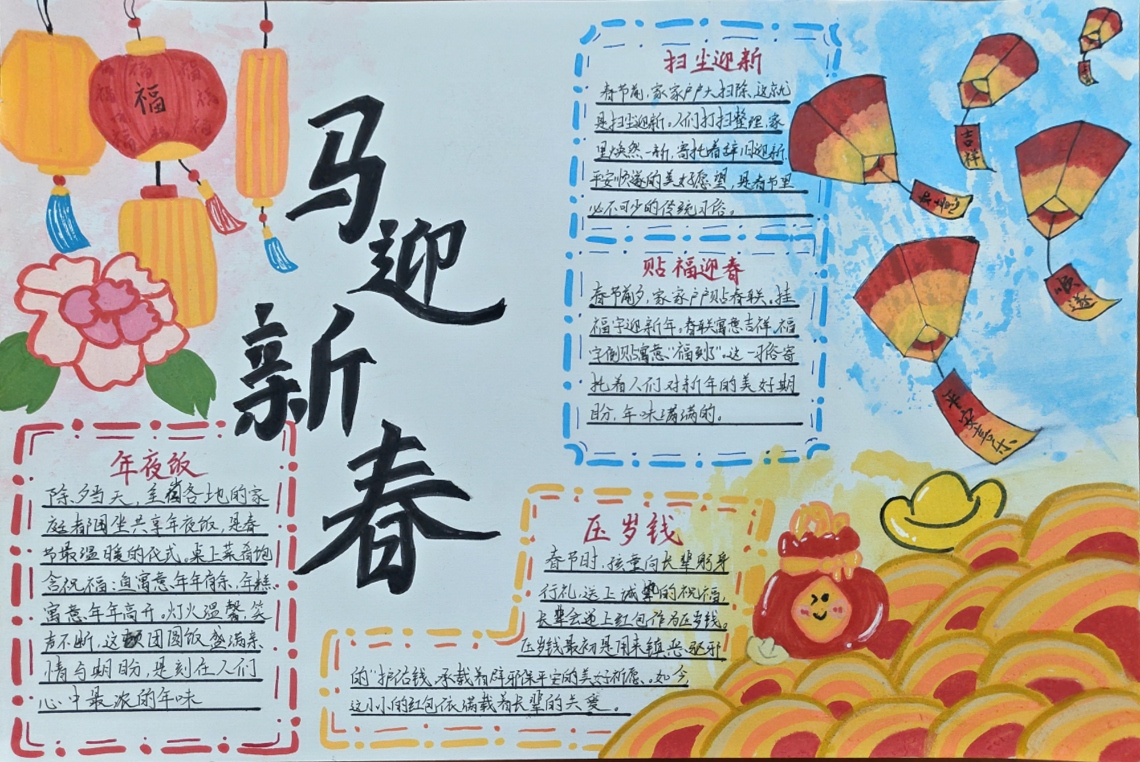 福
马
迎
新
春
扫尘迎新
春节前,家家户户大扫除,这就
是扫尘迎新。人们打扫整理,家
里焕然一新,寄托着辞旧迎新、
平安顺遂的美好愿望,是春节里
必不可少的传统习俗。
贴福迎春
春节前夕,家家户户贴春联、挂
福字迎新年。春联寓意吉祥,福
字倒贴寓意“福到了”。这一习俗寄
托着人们对新年的美好期
盼,年味满满的。
吉祥
顺遂
平安喜乐
年夜饭
除夕当天,全国各地的家
庭都围坐共享年夜饭,是春
节最温暖的仪式。桌上菜肴饱
含祝福:鱼寓意年年有余,年糕
寓意年年高升。灯火温馨,笑
声不断,这顿团圆饭盛满亲
情与期盼,是刻在人们
心中最浓的年味
压岁钱
春节时,孩童向长辈躬身
行礼,送上诚挚的祝福,
长辈会递上红包作为压岁钱。
压岁钱最初是用来镇恶驱邪
的“护佑钱,承载着辟邪保平安的美好祈愿。如今,
这小小的红包依满载着长辈的关爱。